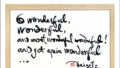 O wonderful,
wonderful,
and most wonderful wonderful!
and yet again wonderful...